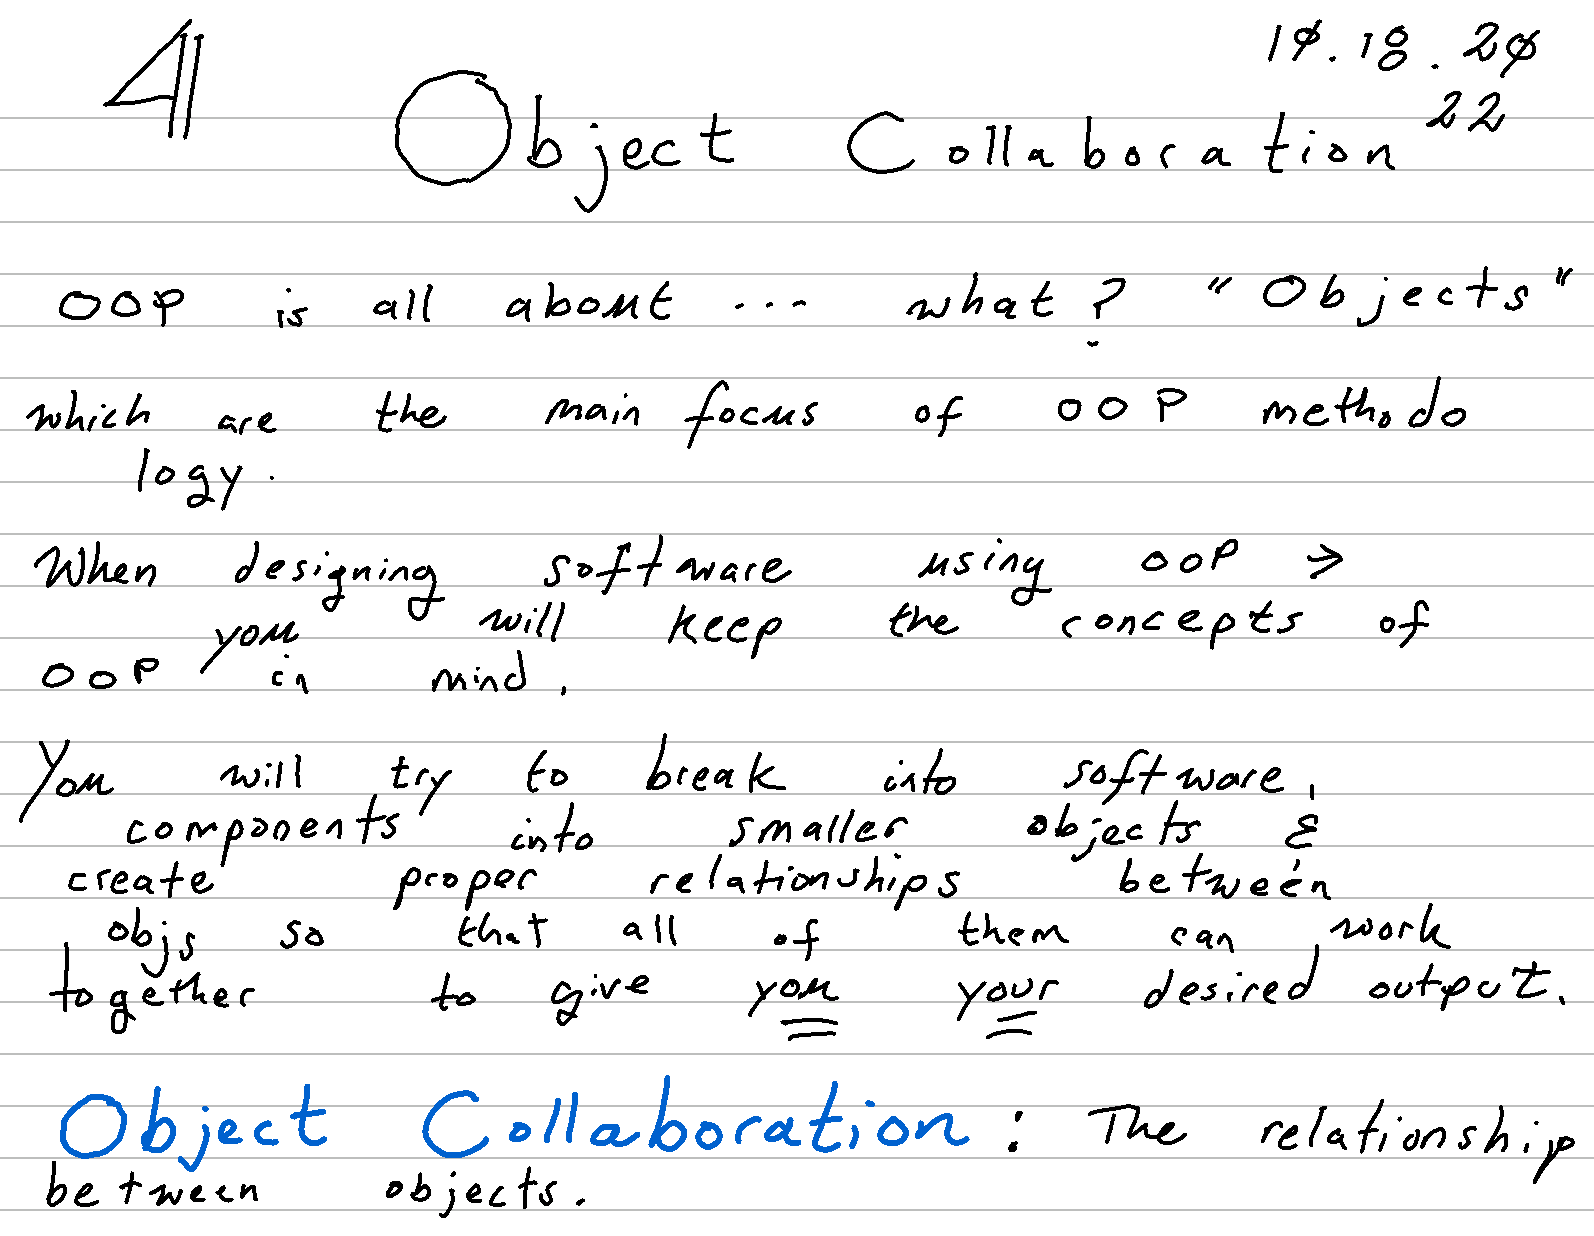 4 10.18.20
22
Object Collaboration
OOP is all about ... what? "Objects"
which are the main focus of OOP methodo
logy.
When designing software using OOP →
you will keep the concepts of
OOP in mind.
You will try to break into software,
components into smaller objects &
create proper relationships between
objs so that all of them can work
together to give you your desired output.
Object Collaboration: The relationship
between objects.